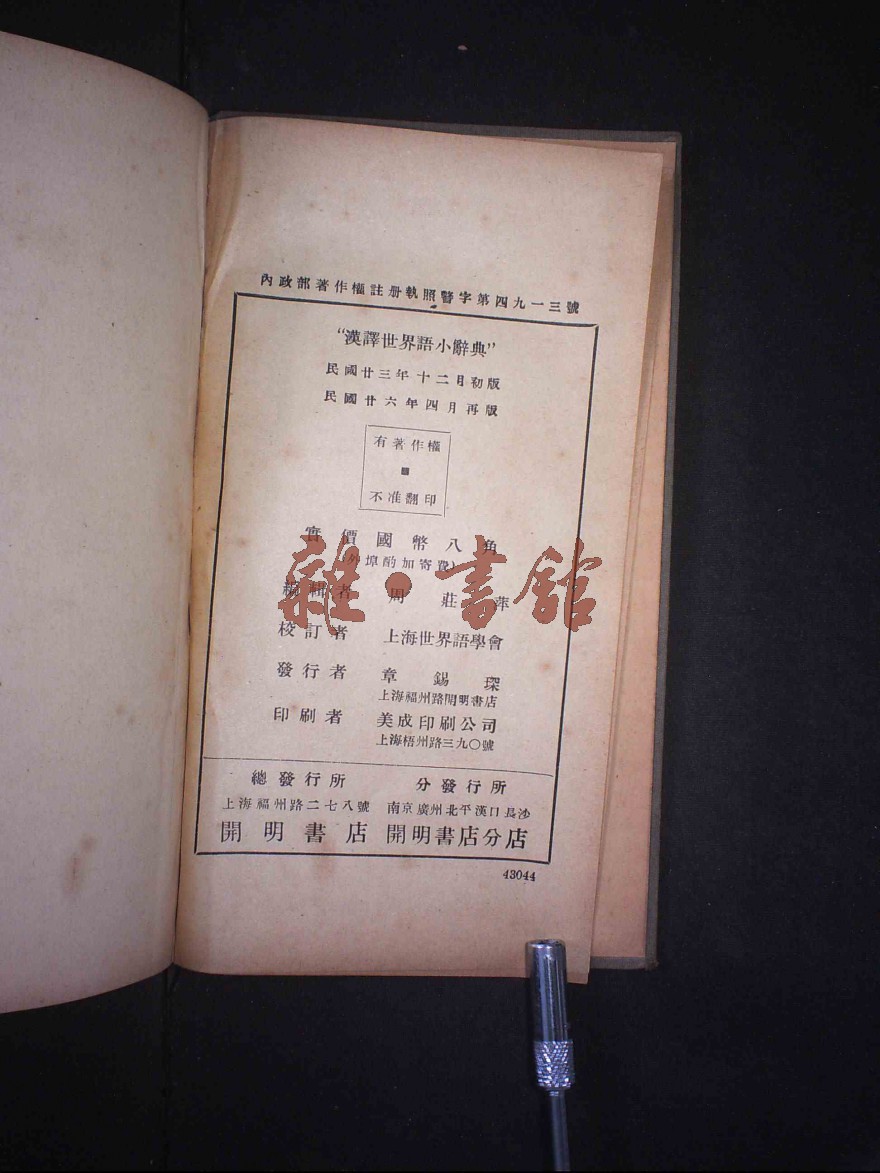 內政部著作權註册執照警字第四九一三號
“漢譯世界語小辭典”
民國廿三年十二月初版
民國廿六年四月再版
有著作權
不准翻印
實價國幣八角
(外埠酌加寄費)
編輯者 周莊萍
校訂者 上海世界語學會
發行者 章錫琛
上海福州路開明書店
印刷者 美成印刷公司
上海梧州路三九〇號
總發行所 分發行所
上海福州路二七八號 南京廣州北平漢口長沙
開明書店 開明書店分店
43044
雜·書館